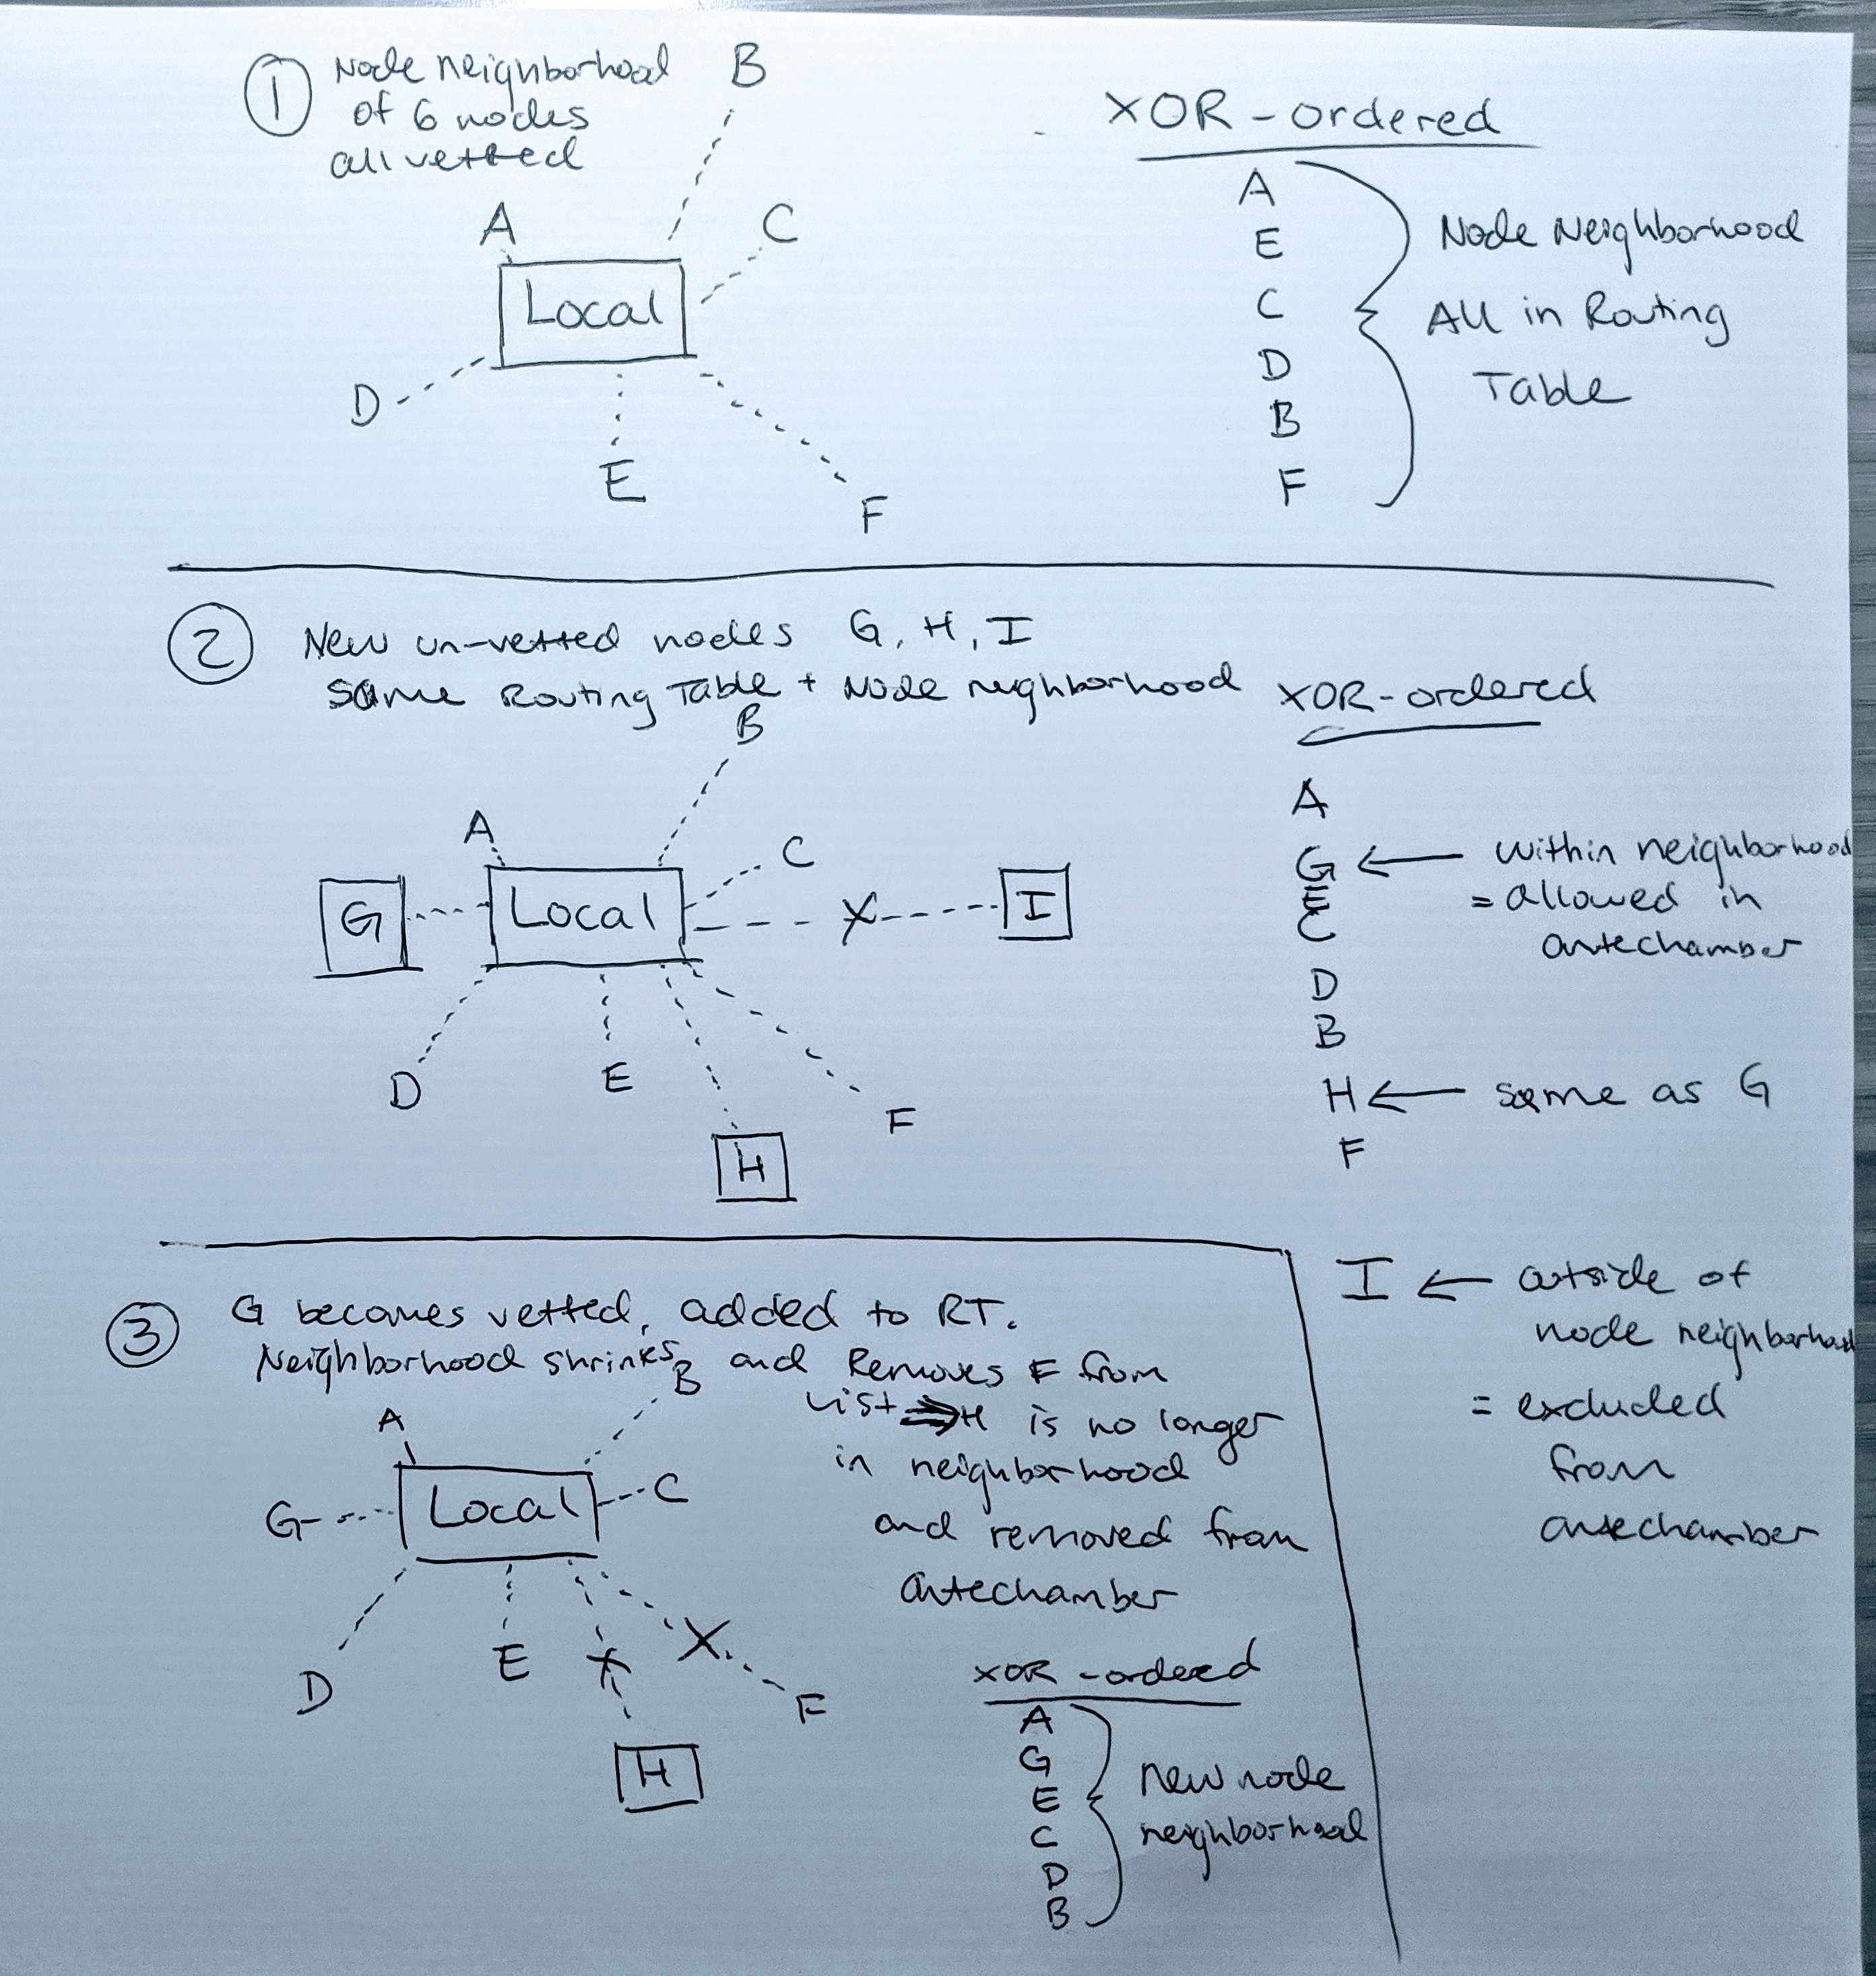 1 Node neighborhood
of 6 nodes
all vetted
B
A
C
Local
D
E
F
XOR-ordered
A
E
C
D
B
F
Node Neighborhood
All in Routing
Table
2 New un-vetted nodes G, H, I
Same Routing Table + Node neighborhood
B
A
C
G
Local
X
I
D
E
F
H
XOR-ordered
A
G ← within neighborhood
= allowed in
antechamber
E
C
D
B
H ← same as G
F
I ← outside of
node neighborhood
= excluded
from
antechamber
3 G becomes vetted, added to RT.
Neighborhood shrinks and Removes F from
List ⇒ H is no longer
in neighborhood
and removed from
antechamber
B
A
G
Local
C
D
E
X
X
F
H
XOR-ordered
A
G
E
C
D
B
new node
neighborhood